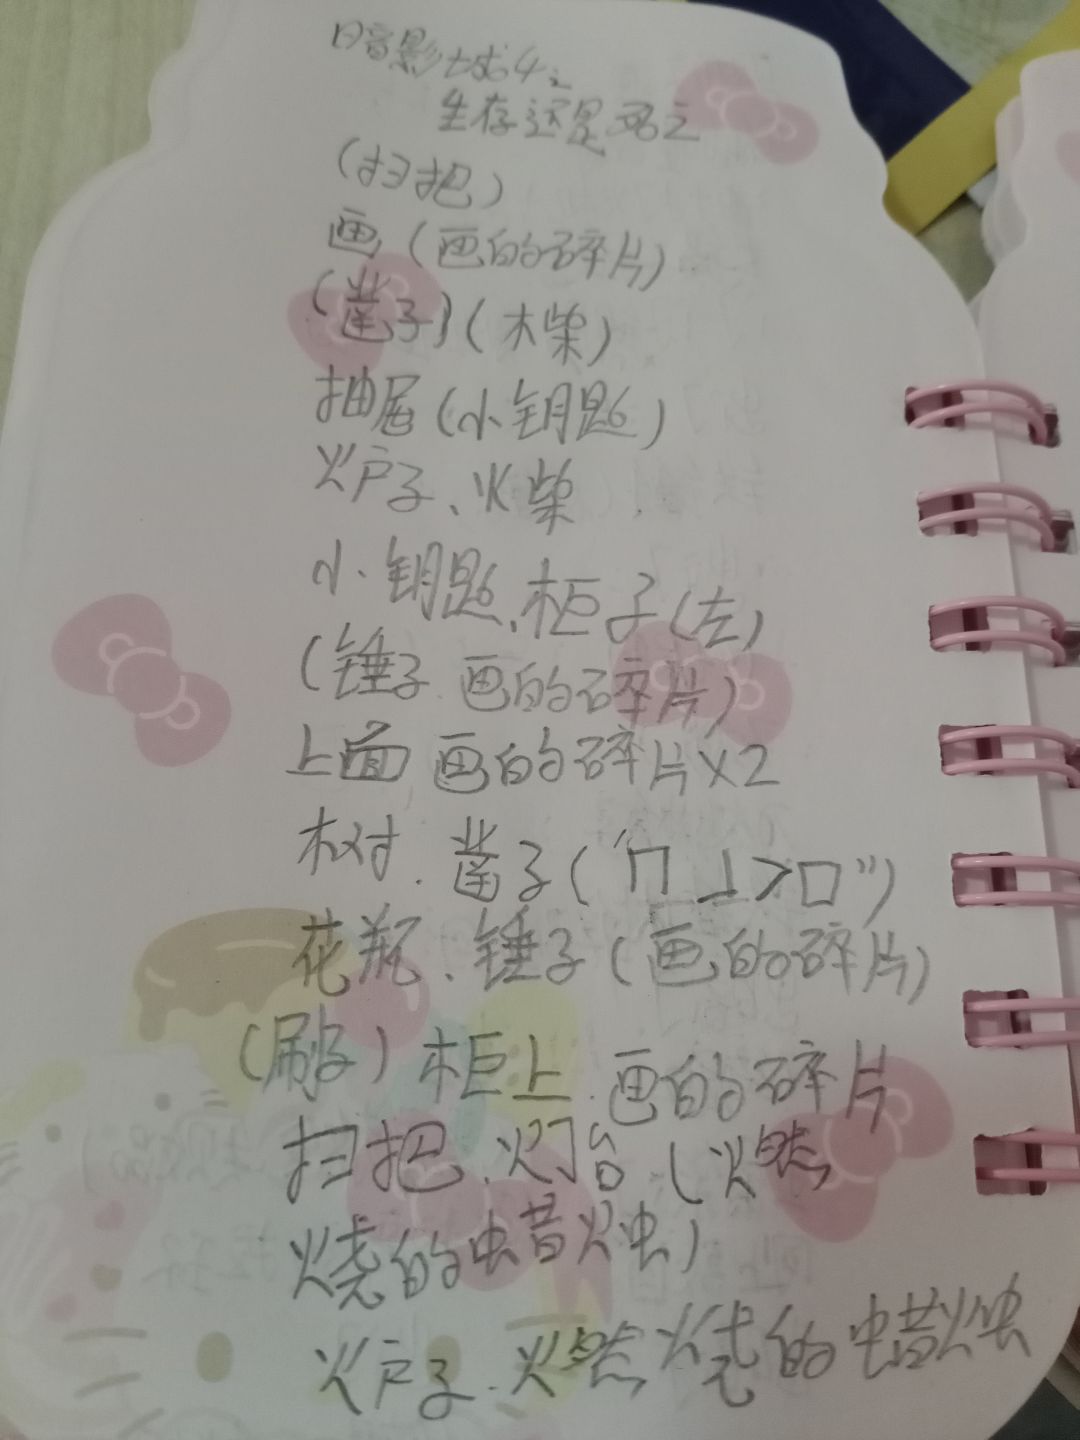 暗影火球4：
生存还是死亡
(扫把)
画(画的碎片)
(凿子)(木柴)
抽屉(小钥匙)
火炉子、火柴
小钥匙、柜子(左)
(锤子 画的碎片)
上面 画的碎片×2
树.凿子("⊓⊥>□")
花瓶、锤子(画的碎片)
(刷子)柜上.画的碎片
扫把、灯台(燃
烧的蜡烛)
火炉子.燃烧的蜡烛